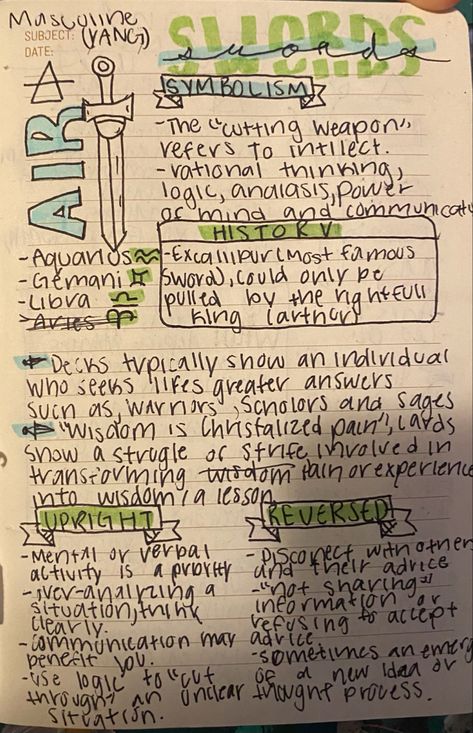 Masculine
SUBJECT: (YANG)
DATE:
SWORDS
swords
AIR
SYMBOLISM
-The "cutting weapon"
refers to intllect.
-rational thinking,
logic, analasis, power
of mind and communicati
-Aquarius
-Gemani
-Libra
-Aries
HISTORY
-Excallipur (most famous
sword), could only be
pulled by the rightfull
king (arthur)
Decks typically show an individual
who seeks lifes greater answers
such as, warriors, scholors and sages
"Wisdom is Christalized pain", cards
show a strugle or strife involved in
transforming wisdom pain or experience
into wisdom/a lesson
UPRIGHT
-Mental or verbal
activity is a priority
-over-analizing a
situation, think
clearly.
-communication may
benefit you.
-use logic to "cut
through" an unclear
situation.
REVERSED
-Disconect with other
and their advice
-"not sharing"
information or
refusing to accept
advice.
-sometimes an emerg
of a new idea or
thought process.